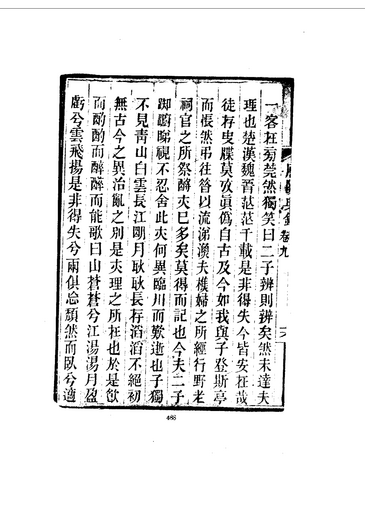 一客在旁莞然獨笑曰二子辨則辨矣然未達夫
理也楚漢魏晋茫茫千載是非得失今皆安在哉
徒存史牒莫攷眞偽自古及今如我與子登斯亭
而悵然弔往咎以流涕瀕夫樵婦之所經行野老
祠官之所祭酹夾已多矣莫得而記也今夫二子
踟躕睇視不忍舍此夾何異臨川而歎逝也子獨
不見靑山白雲長江明月耿耿長存滔滔不絕初
無古今之異治亂之別是夾理之所在也於是飲
而酌酌而醉醉而能歌曰山蒼蒼兮江湯湯月盈
虧兮雲飛揚是非得失兮兩俱忘頹然而臥兮適
卷九
486